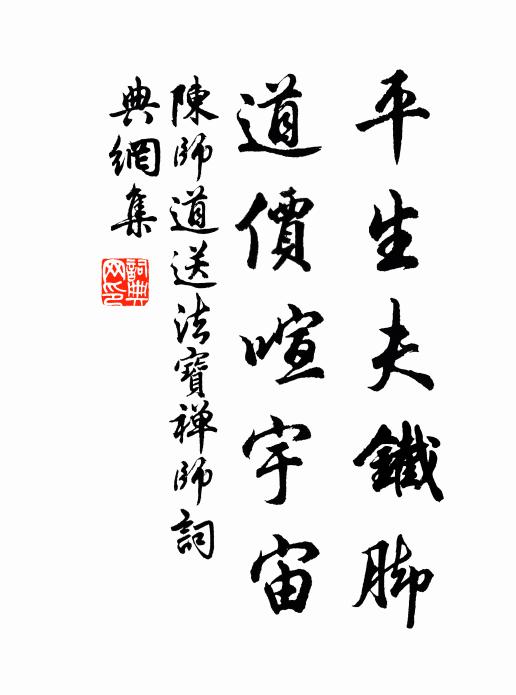 平生夫鐵脚
道價喧宇宙
陳師道送法寶禪師詞
典網集
詞典網印